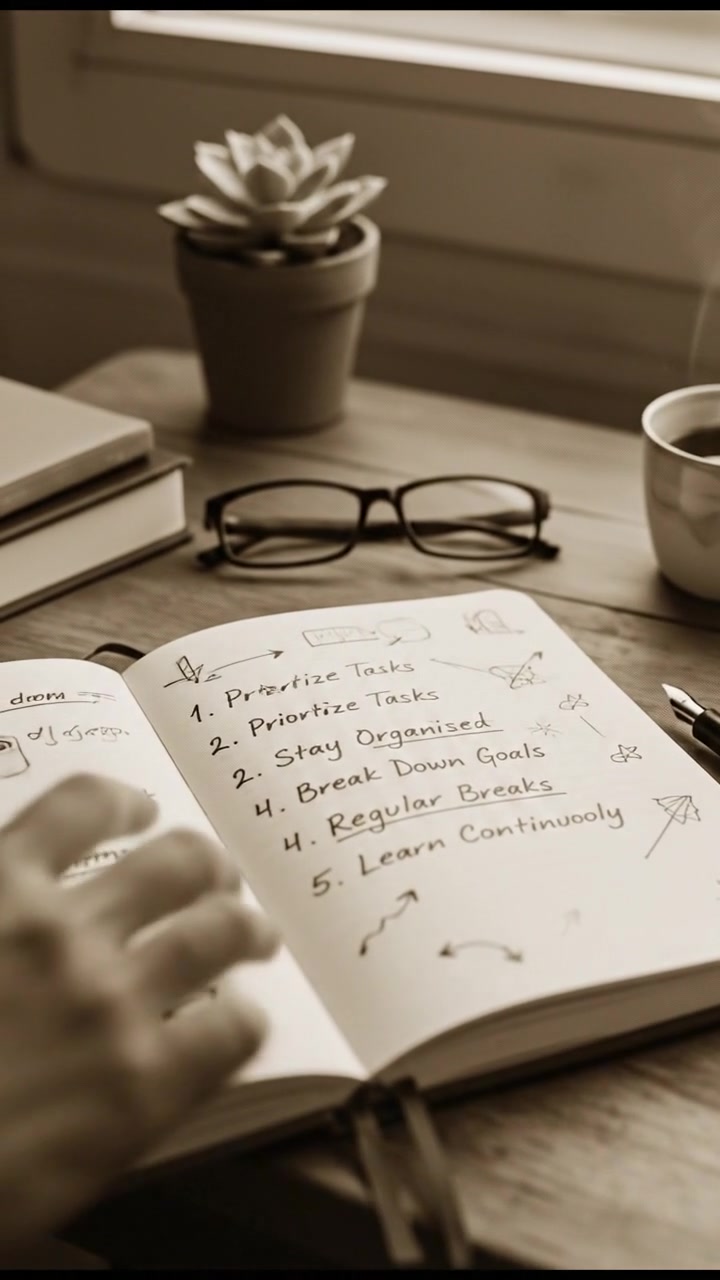 doom
1. Priortize Tasks
2. Priortize Tasks
2. Stay Organised
4. Break Down Goals
4. Regular Breaks
5. Learn Continuooly